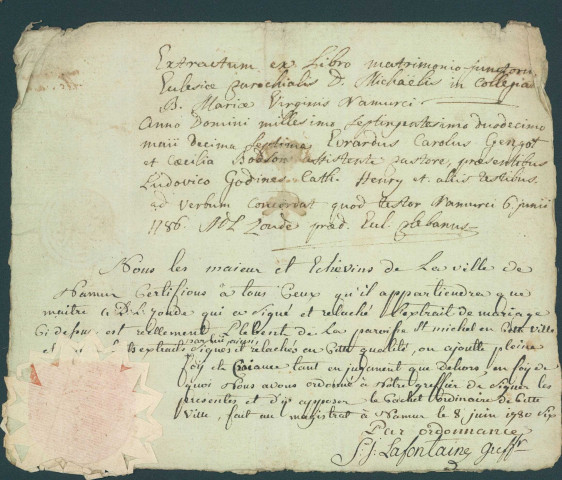 Extractum ex Libro matrimonio junctorum
Ecclesiae parochialis D. Michaëlis in Collegia
B. Mariæ Virginis Namurci
Anno Domini millesimo septingentesimo duodecimo
maii decima septima Evrardus Carolus Genot
et Cæcilia Bodson assistente pastore, præsentibus
Ludovico Godines Cath. Henry et aliis testibus.
ad verbum concordat quod testor Namurci 6 junii
1786. Zoude præd. Eccl. plebanus
Nous les maieur et Echevins de La ville de
Namur Certifions à tous Ceux qu'il appartiendra que
maitre Zoude qui a signé et relaché l'extrait de mariage
Ci dessus est reellement plebent de La paroisse St michel en Cette ville
et extraits signés et relachés en Cette qualité, on ajoute pleine
foy et Creance tant en jugement que dehors en foy de
quoi Nous avons ordonné à Notre greffier de signer les
presentes et d'y apposer le Cachet ordinaire de Cette
Ville, fait au magistrat à Namur le 8 juin
Par ordonnance
Lafontaine greffr